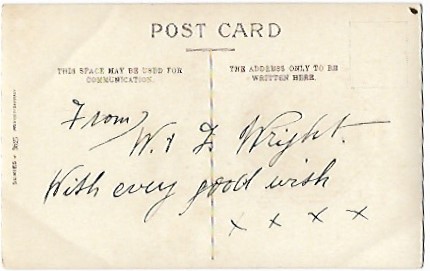 POST CARD
THIS SPACE MAY BE USED FOR
COMMUNICATION.
THE ADDRESS ONLY TO BE
WRITTEN HERE.
From
W. & F Wright.
With every good wish
x x x x